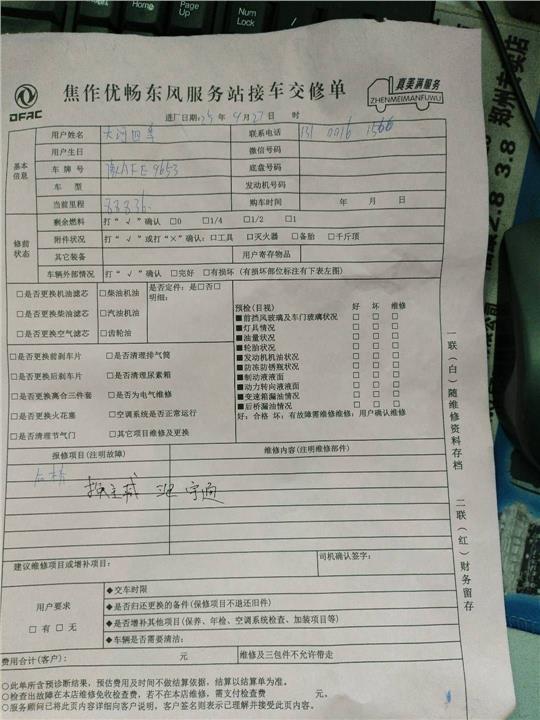 Home
Page Up
Num Lock
DFAC
焦作优畅东风服务站接车交修单
真美满服务
ZHENMEIMANFUWU
进厂日期:25 年 9 月 27 日 时
基本信息
用户姓名 联系电话 131 0016 1566
用户生日 微信号码
车牌号 豫AFE9653 底盘号码
车型 发动机号码
当前里程 购车时间 年 月 日
修前状态
剩余燃料 打“√”确认 □0 □1/4 □1/2 □1
附件状况 打“√”或打“×”确认:□工具 □灭火器 □备胎 □千斤顶
其它装备 用户寄存物品
车辆外部情况 打“√”确认 □完好 □有损坏(有损坏部位标注有下表左图)
□是否更换机油滤芯 □柴油机油 是否定件:是□否□
明细:
□是否更换柴油滤芯 □汽油机油
□是否更换空气滤芯 □齿轮油
□是否更换前刹车片 □是否清理排气筒
□是否更换后刹车片 □是否清理尿素箱
□是否更换离合三件套 □是否为电气维修
□是否更换火花塞 □空调系统是否正常运行
□是否清理节气门 □其它项目维修及更换
预检(目视) 好 坏 维修
■前挡风玻璃及车门玻璃状况 □ □ □
■灯具情况 □ □ □
■油量状况 □ □ □
■轮胎状况 □ □ □
■发动机机油状况 □ □ □
■防冻防锈瓶状况 □ □ □
■制动液液面 □ □ □
■动力转向液液面 □ □ □
■变速箱漏油情况 □ □ □
■后桥漏油情况 □ □ □
好:合格 坏:有故障需维修维修:用户确认维修
报修项目(注明故障) 维修内容(注明维修部件)
建议维修项目或增补项目: 司机确认签字:
用户要求
□有 □无
◆交车时限
◆是否归还更换的备件(保修项目不退还旧件)
◆是否增补其他项目(保养、年检、空调系统检查、加装项目等)
◆车辆是否需要清洁:
费用合计(客户): 元 维修及三包件不允许带走
○此单所含预诊断结果,预估费用及时间不做结算依据,结算以结算单为准。
○检查出故障在本店维修免收检查费,若不在本店维修,需支付检查费 元。
○服务顾问已将此页内容详细向客户说明,客户签名则表示已理解并接受此页内容。
一联(白)随维修资料存档
二联(红)财务留存